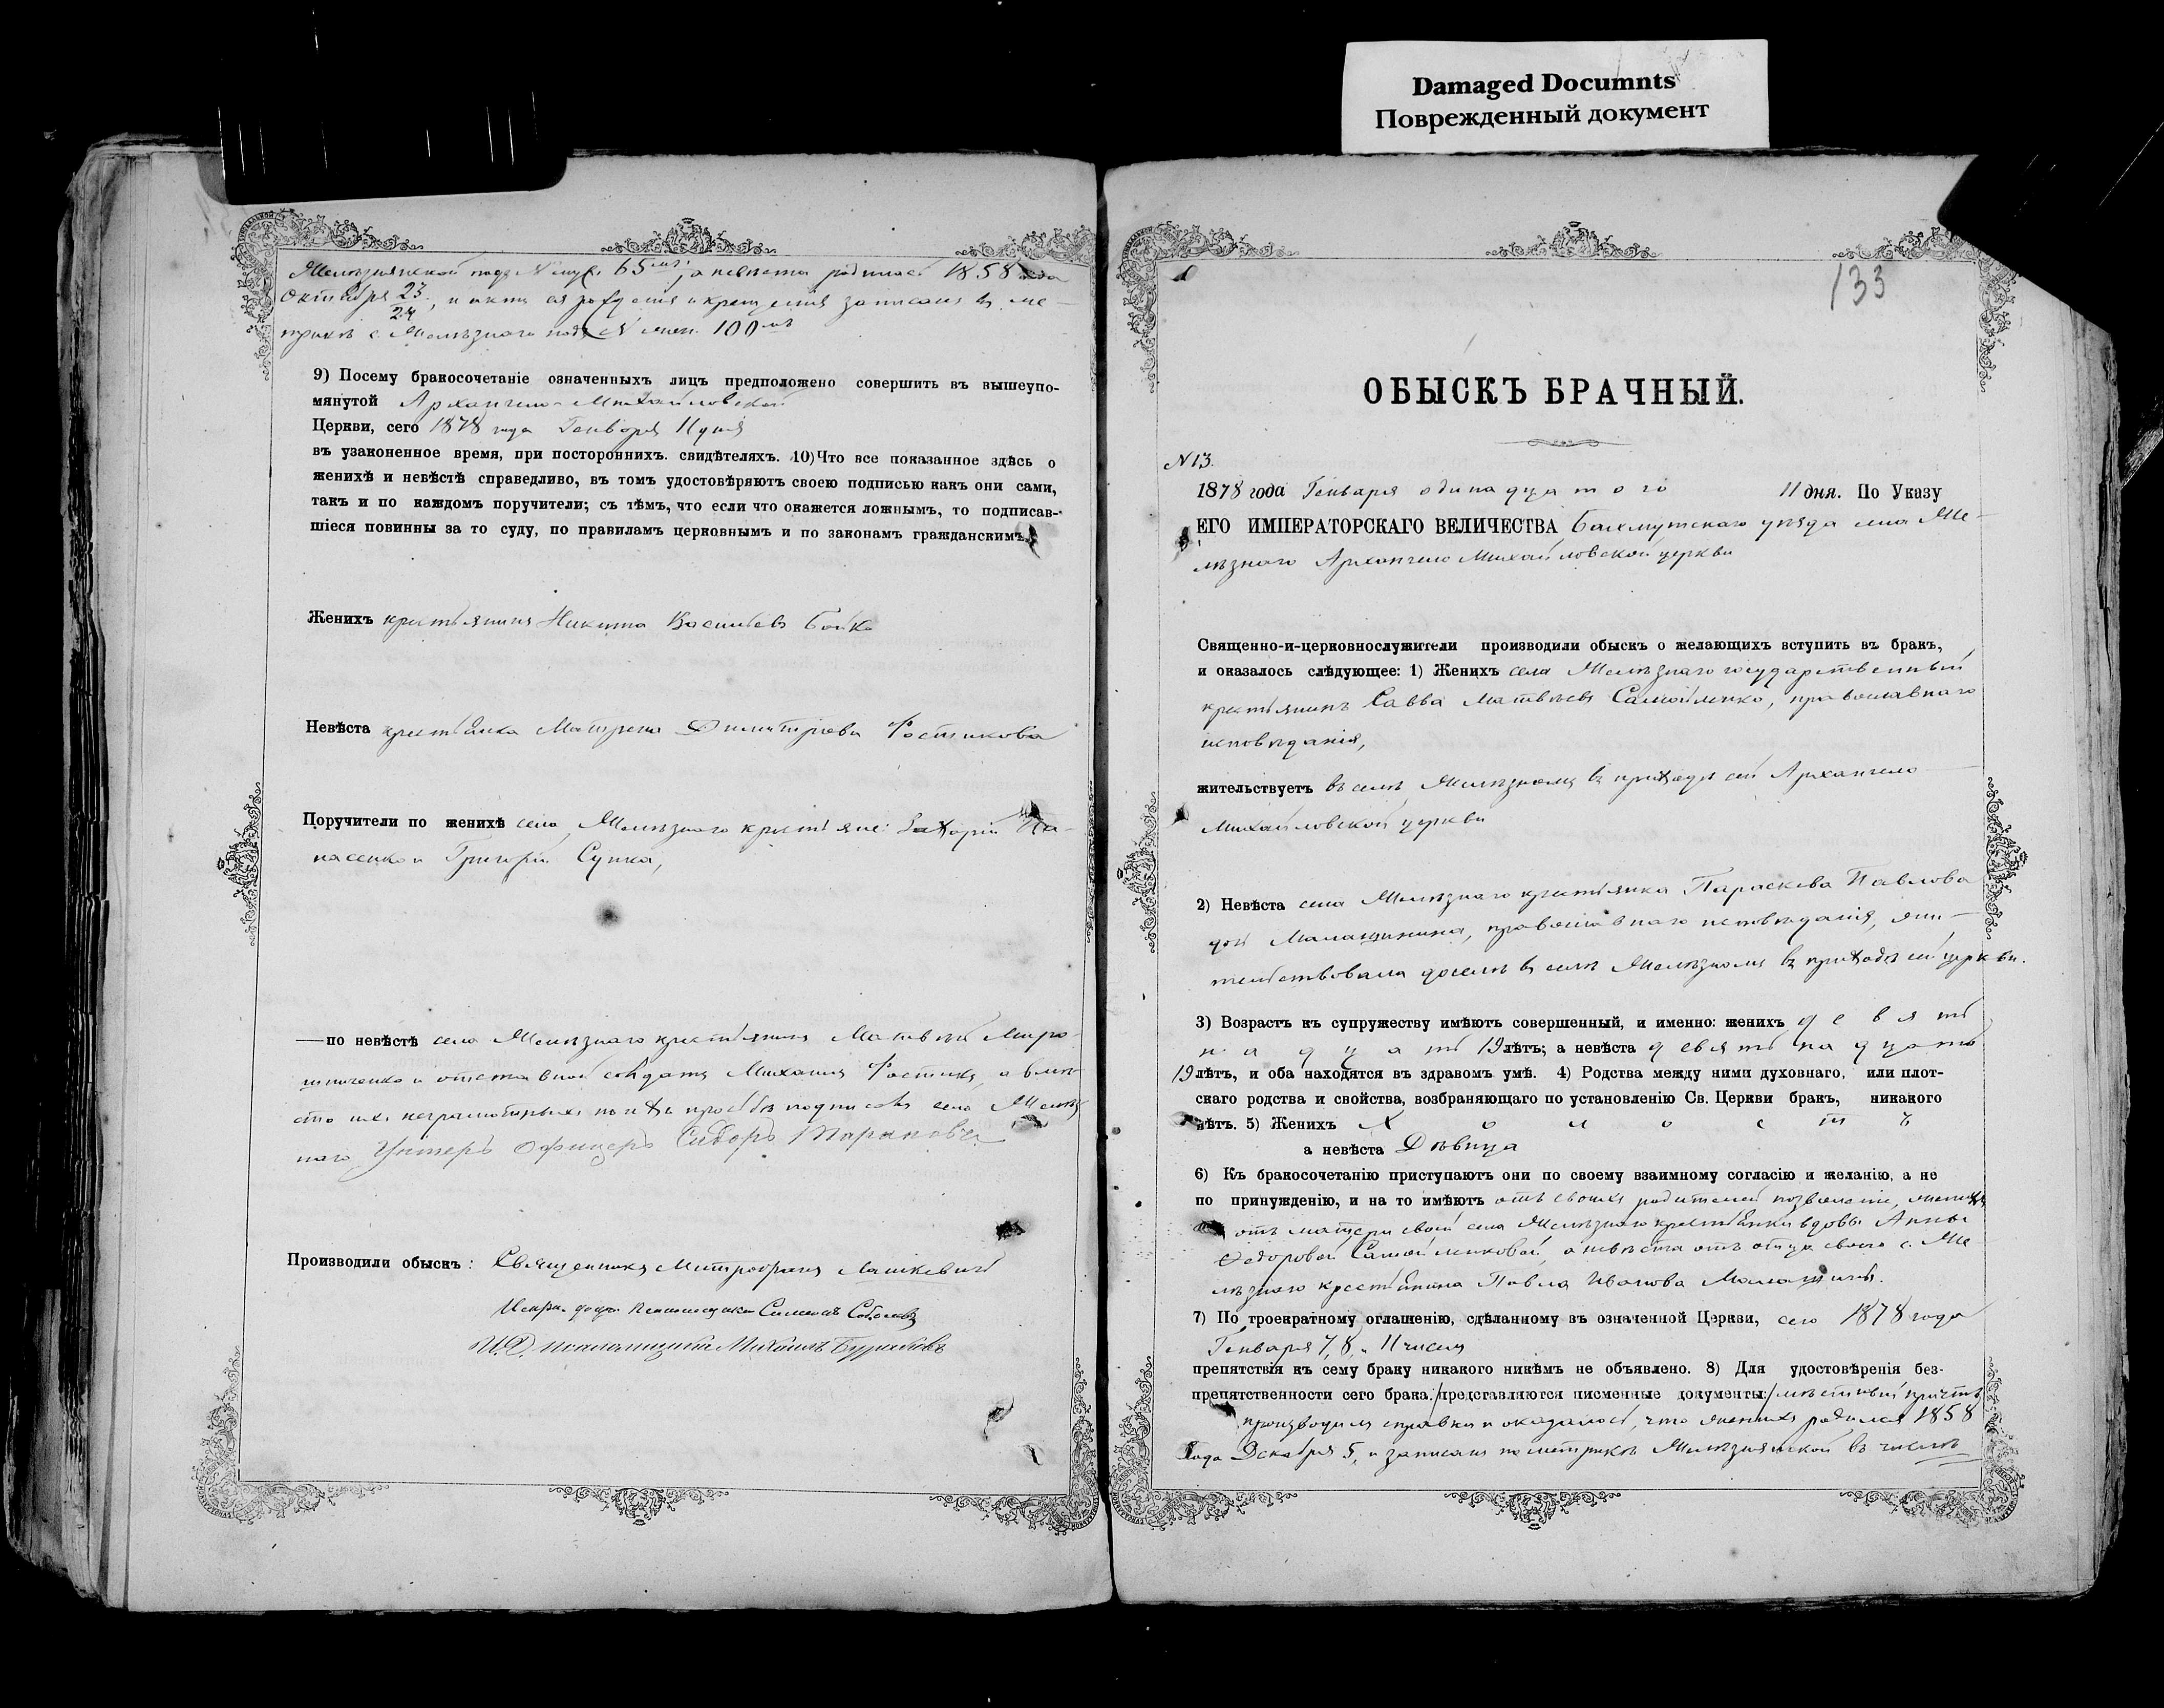 Damaged Documnts
Поврежденный документ
Желѣзнянской подъ № муж. 65мъ, а невѣста родилась 1858 года
Октября 23/24, и актъ ея рожденія и крещенія записанъ въ ме-
трикѣ с. Желѣзнаго подъ № жен. 100мъ
9) Посему бракосочетаніе означенныхъ лицъ предположено совершить въ вышеупо-
мянутой Архангело-Михайловской
Церкви, сего 1878 года Генваря 11 дня
въ узаконенное время, при постороннихъ. свидѣтеляхъ. 10) Что все показанное здѣсь о
женихѣ и невѣстѣ справедливо, въ томъ удостовѣряютъ своею подписью какъ они сами,
такъ и по каждомъ поручители; съ тѣмъ, что если что окажется ложнымъ, то подписав-
шіеся повинны за то суду, по правиламъ церковнымъ и по законамъ гражданскимъ.
Женихъ крестьянинъ Никита Васильевъ Бойко
Невѣста крестьянка Матрена Димитріева Фостикова
Поручители по женихѣ села Желѣзнаго крестьяне: Захарій Па-
насенко и Григорій Супка,
—по невѣстѣ села Желѣзнаго крестьянинъ Матвѣй Миро-
шниченко и отставной солдатъ Михаилъ Фостикъ, а вмѣ-
сто ихъ неграмотныхъ по ихъ прозьбѣ подписалъ села Желѣз-
наго Унтеръ Офицеръ Сидоръ Тарановъ
Производили обыскъ: Священникъ Митрофанъ Лашкевичъ
Испр. долж. псаломщика Симеонъ Соболевъ
И.Д. псаломщика Михаилъ
133
ОБЫСКЪ БРАЧНЫЙ.
№ 13.
1878 года Генваря одинадцатого 11 дня. По Указу
ЕГО ИМПЕРАТОРСКАГО ВЕЛИЧЕСТВА Бахмутскаго уѣзда села Же-
лѣзнаго Архангело Михайловской церкви
Священно-и-церковнослужители производили обыск о желающихъ вступить въ бракъ,
и оказалось слѣдующее: 1) Женихъ села Желѣзнаго государственный
крестьянинъ Савва Матвѣевъ Самойленко, православнаго
исповѣданія,
жительствуетъ въ селѣ Желѣзномъ въ приходѣ сей Архангело-
Михайловской церкви
2) Невѣста села Желѣзнаго крестьянка Параскева Павлова
дочь православнаго исповѣданія, жи-
тельствовала доселѣ въ селѣ Желѣзномъ въ приходѣ сей церкви.
3) Возрастъ къ супружеству имѣютъ совершенный, и именно: женихъ девять
надцать 19 лѣтъ; а невѣста девятьнадцать
19 лѣтъ, и оба находятся въ здравомъ умѣ. 4) Родства между ними духовнаго, или плот-
скаго родства и свойства, возбраняющаго по установленію Св. Церкви бракъ, никакого
нѣтъ. 5) Женихъ Холостъ
а невѣста Дѣвица
6) Къ бракосочетанію приступаютъ они по своему взаимному согласію и желанію, а не
по принужденію, и на то имѣютъ отъ своихъ родителей позволеніе, женихъ
отъ матери своей села Желѣзнаго крестьянки вдовы Анны
Ѳедоровой Самойленковой, а невѣста отъ отца своего с. Же
лѣзнаго крестьянина Павла Иванова
7) По троекратному оглашенію, сдѣланному въ означенной Церкви, сего 1878 года
Генваря 7, 8, и 11 числа
препятствія къ сему браку никакого никѣмъ не объявлено. 8) Для удостовѣренія без-
препятственности сего брака, представляются писменные документы: мѣстный причтъ
производилъ справки и оказалось, что женихъ родился 1858
года Декабря 5, и записанъ по метрикѣ Желѣзнянской въ числѣ